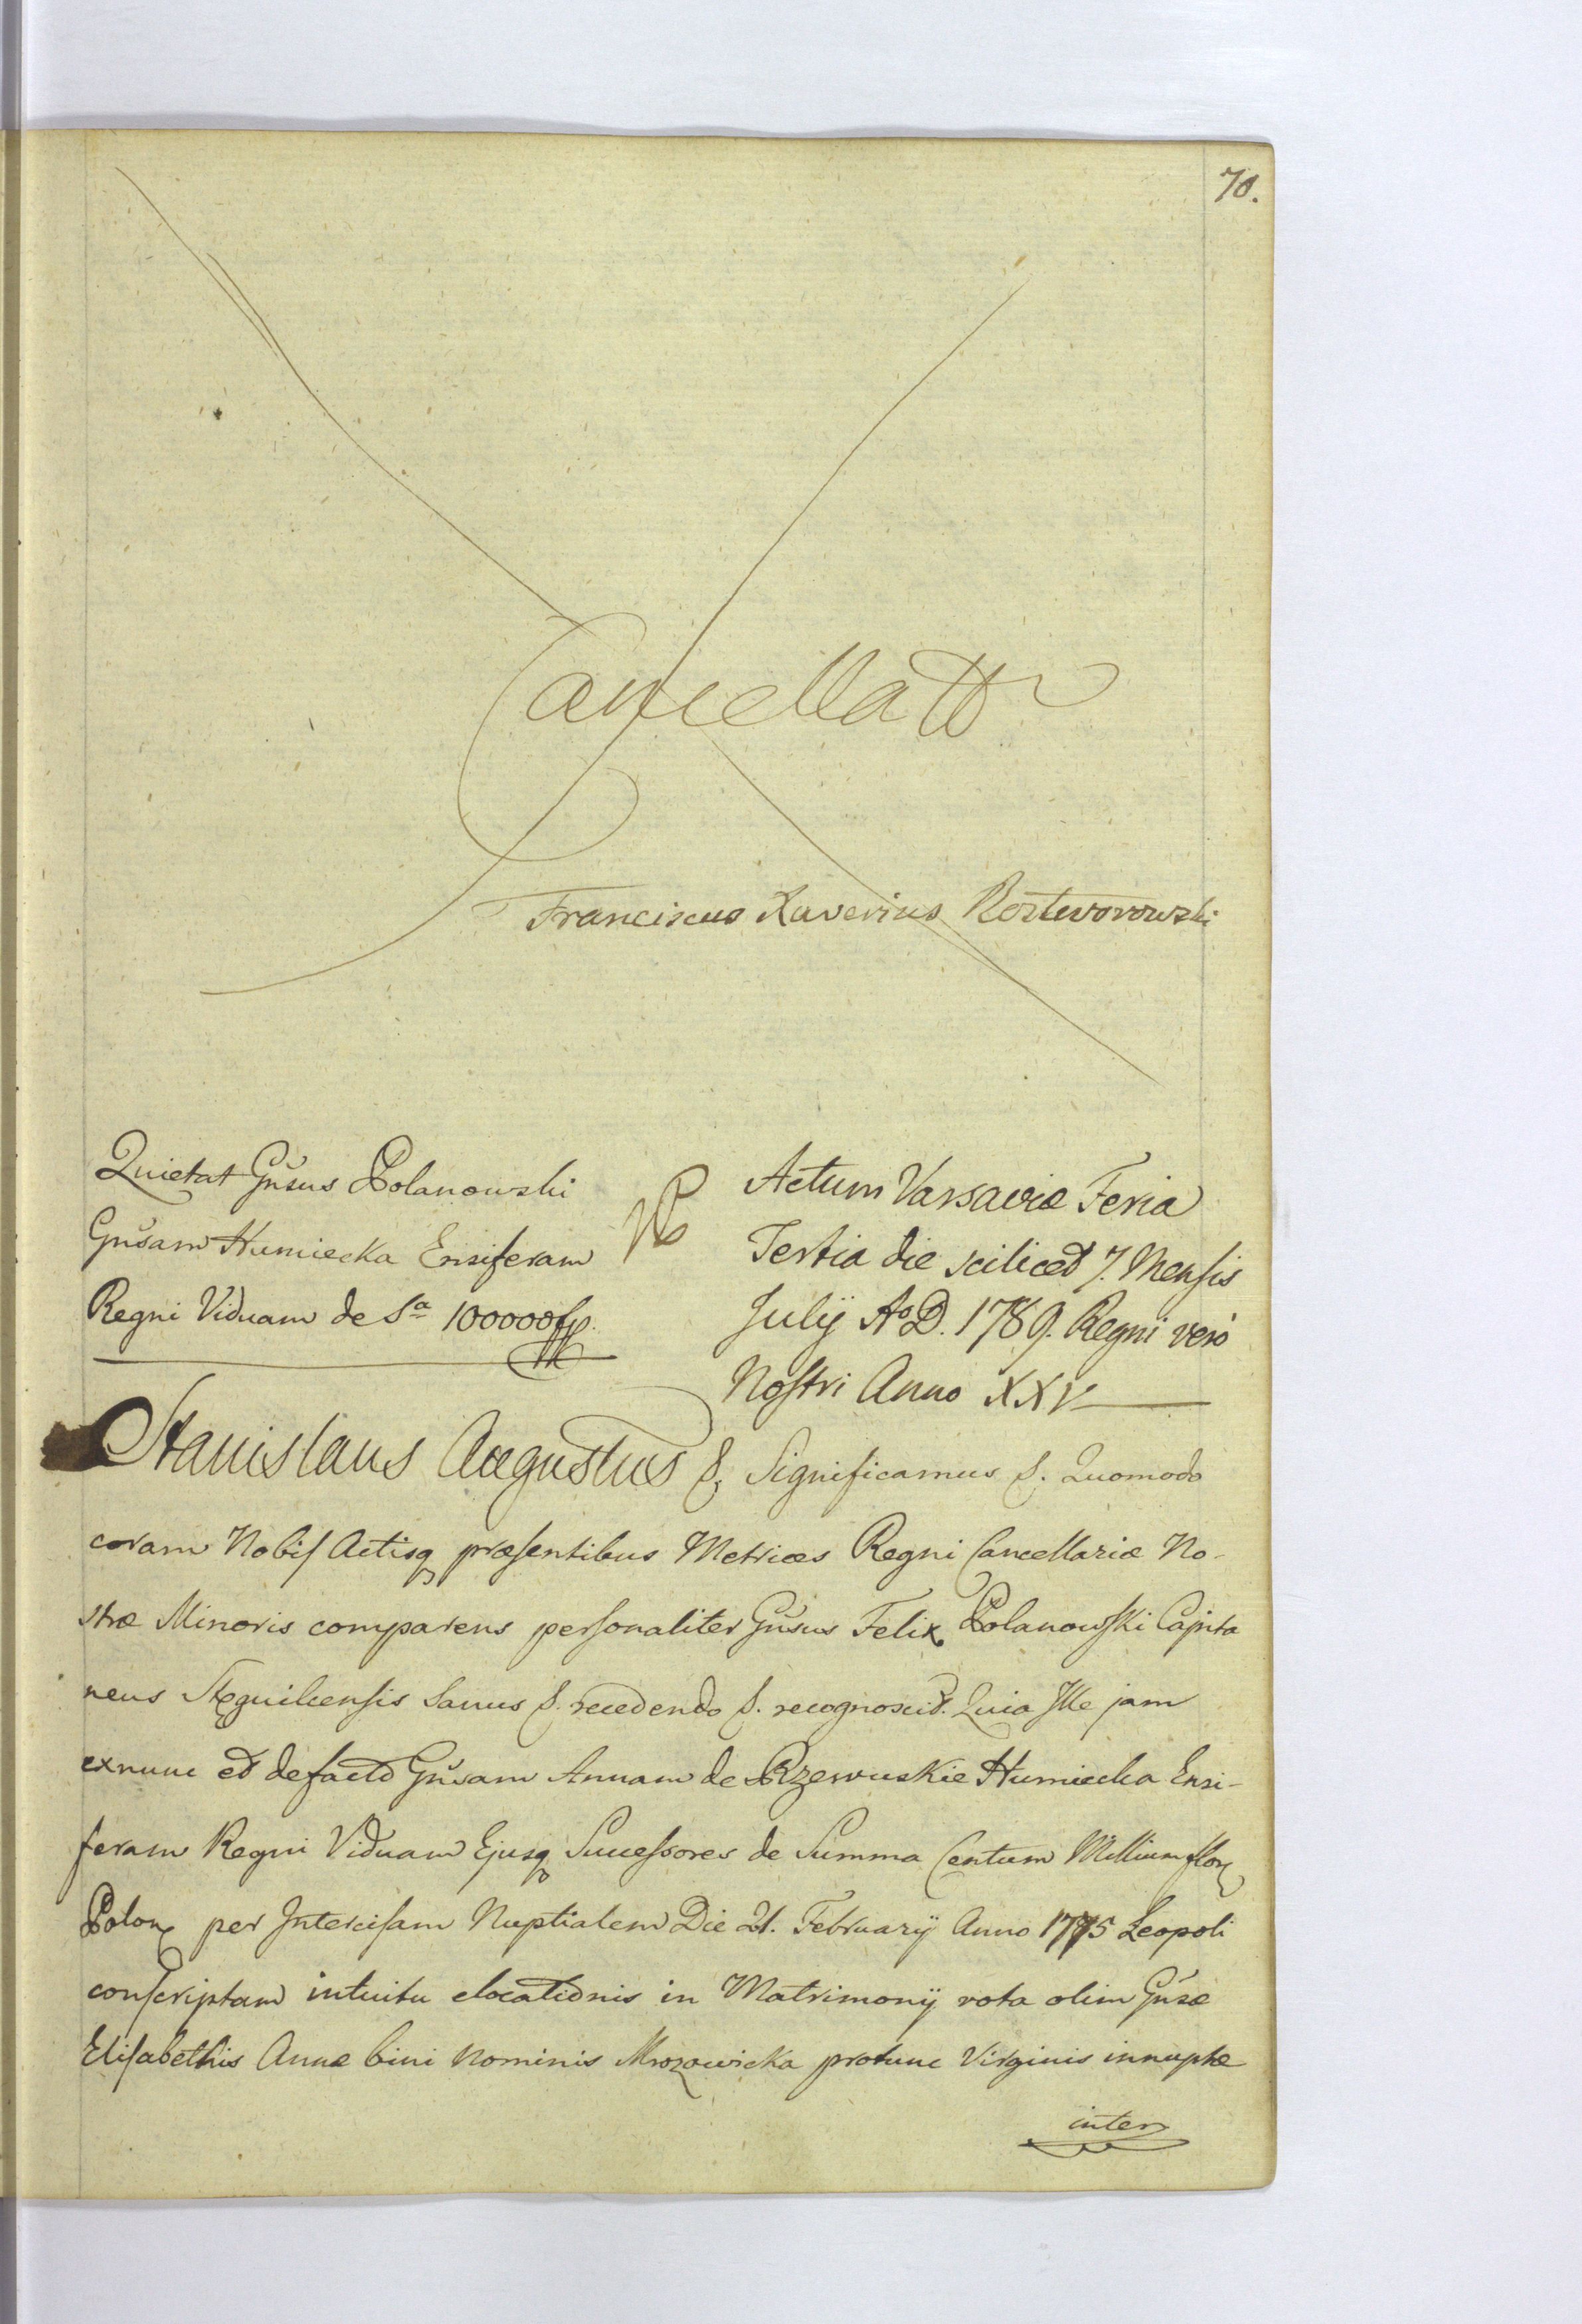 70.
Cancellatt
Franciscus Xaverius Rostworowski
Quietat Gnsus Polanowski
Gnsam Humiecka Ensiferam
Regni Viduam de Sa 100000 fp.
Actum Varsaviæ Feria
Tertia die scilicet 7. Mensis
Julÿ Ao D. 1789. Regni vero
Nostri Anno XXV
Stanislaus Augustus &. Significamus &. Quomodo
coram Nobis Actisq præsentibus Metrices Regni Cancellariæ No-
stræ Minoris comparens personaliter Gnsus Felix Polanowski Capita
neus sanus &. recedendo &. recognoscit. Quia Ille jam
exnunc et defacto Gnsam Annam de Rzewuskie Humiecka Ensi-
feram Regni Viduam Ejusq Successores de Summa Centum Millium flor
Polon per Intercisam Nuptialem Die 21. Februarÿ Anno 1775 Leopoli
conscriptam intuitu elocationis in Matrimonÿ vota olim Gnsæ
Elisabethis Annæ bini Nominis Mrozowicka protunc Virginis innuptæ
inter